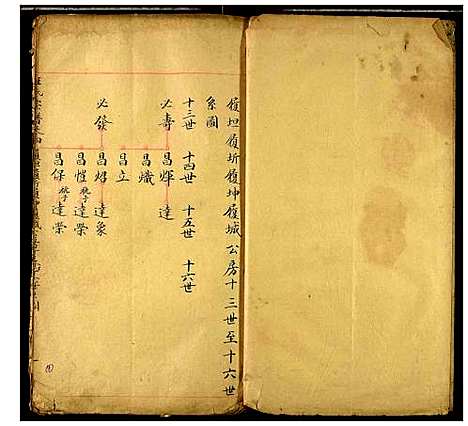 履坦履圻履坤履城公房十三世至十六世
系圖
十三世 十四世 十五世 十六世
必壽 昌煇 達
昌熾
昌立
必發 昌炤 達象
昌恺 祧子 達榮
昌保 祧子 達榮